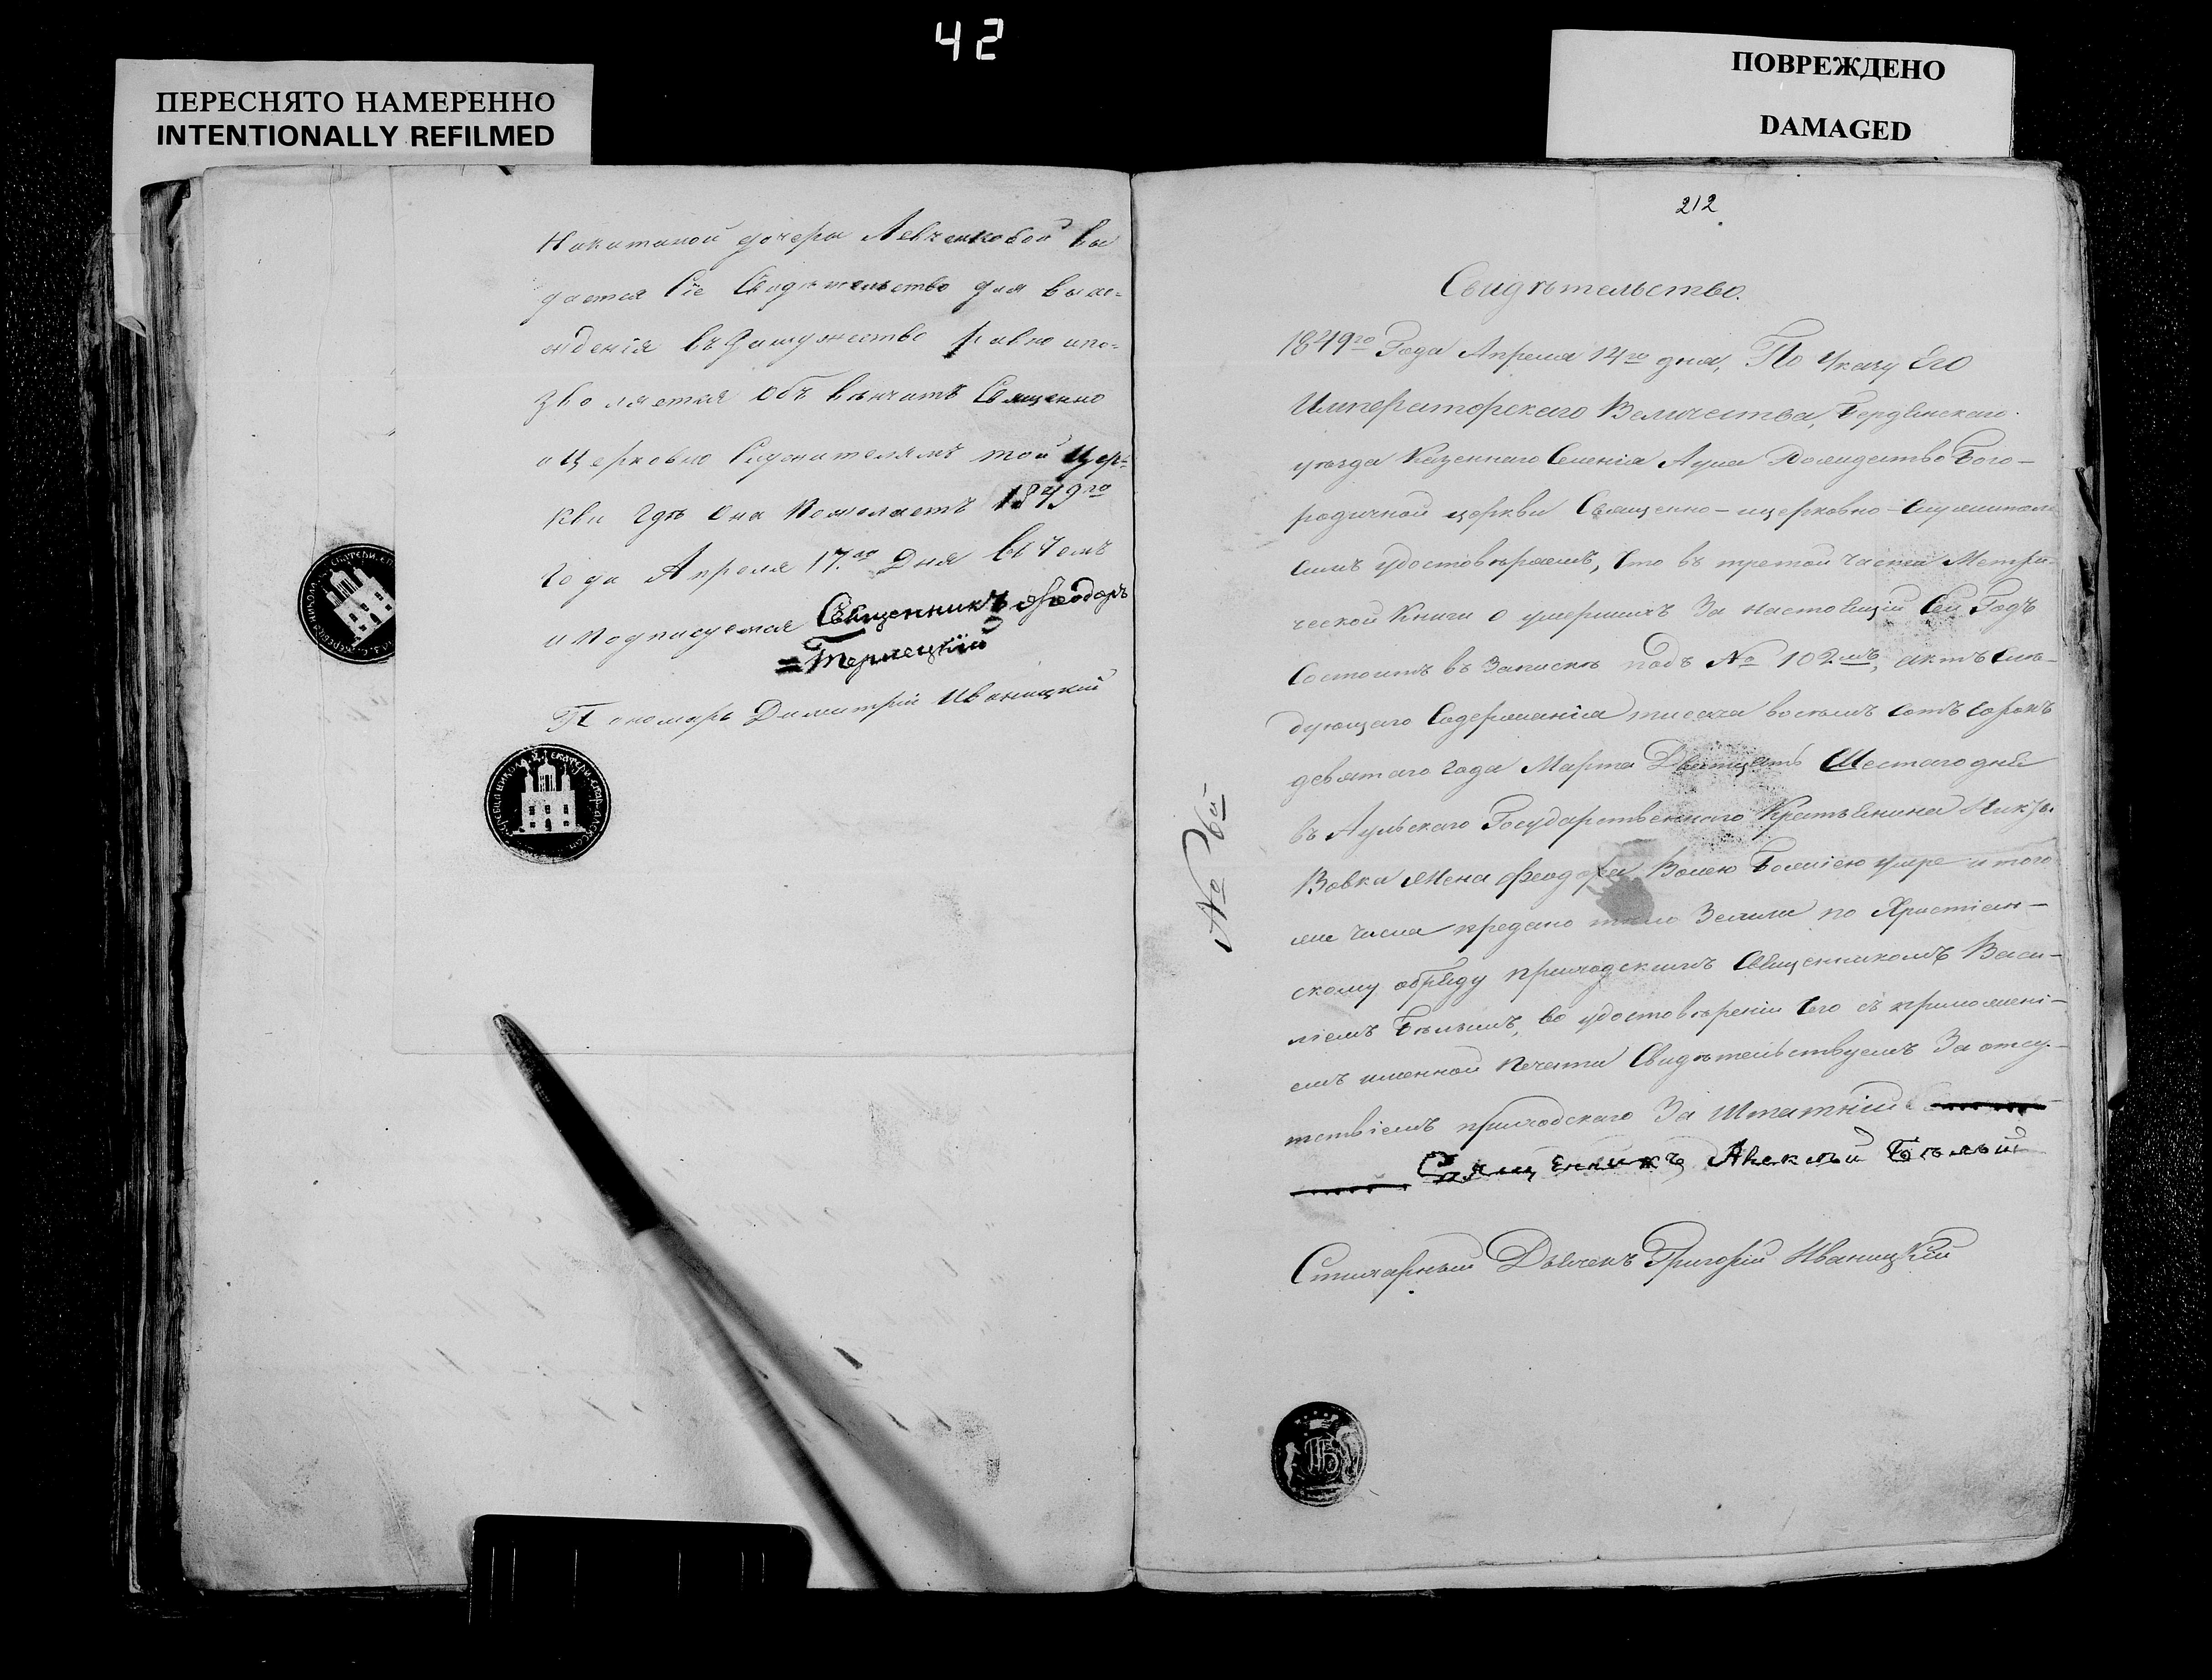 42
ПЕРЕСНЯТО НАМЕРЕННО
INTENTIONALLY REFILMED
ПОВРЕЖДЕНО
DAMAGED
Никитиной дочери Левченковой вы
дается Сіе Свидѣтельство для вы хо=
жденія въ Замужество равно и по=
зволяется Обѣ вѣнчать Священно
и Церковно Служителямъ той Цер=
кви гдѣ Она Пожелаетъ 1849го
Года Апреля 17.го Дня Въ Чемъ
и Подписуемся Священникъ Феодоръ
=Терлецкій
Пономарь Димитрій Иваницкій
212
Свидѣтельство.
1849го Года Апреля 14го дня, По Указу Его
Императорскаго Величества, Бердянскаго
уѣзда Казеннаго Селенія Аула Рождество Бого-
родичной церкви Священно-ицерковно-Служители
Симъ удостовѣряемъ, Что въ третой Части Метри-
ческой Книги О умершихъ За настоящій Сей Годъ
Состоитъ въ Запискѣ подъ № 102мъ, актъ Слѣ-
дующаго Содержанія тисяча восемъ сотъ сорокъ
девятаго Года Марта Двацять Шестаго дня
въ Аульскаго Государственнаго Крестьянина
Вовка Жена Феодора Волею Божіею умре и того
же Числа предано тѣло Земли по Христіан-
скому обряду приходскимъ Священникомъ Васи-
ліемъ Бѣлымъ, во удостовѣреніи Чего съ приложені-
емъ именной Печати Свидѣтельствуемъ За отсу-
тствіемъ приходскаго За Штатній
Священникъ Алексѣй Бѣлый
Стихарный Дьячекъ Григорій Иваницкій
№ 6й